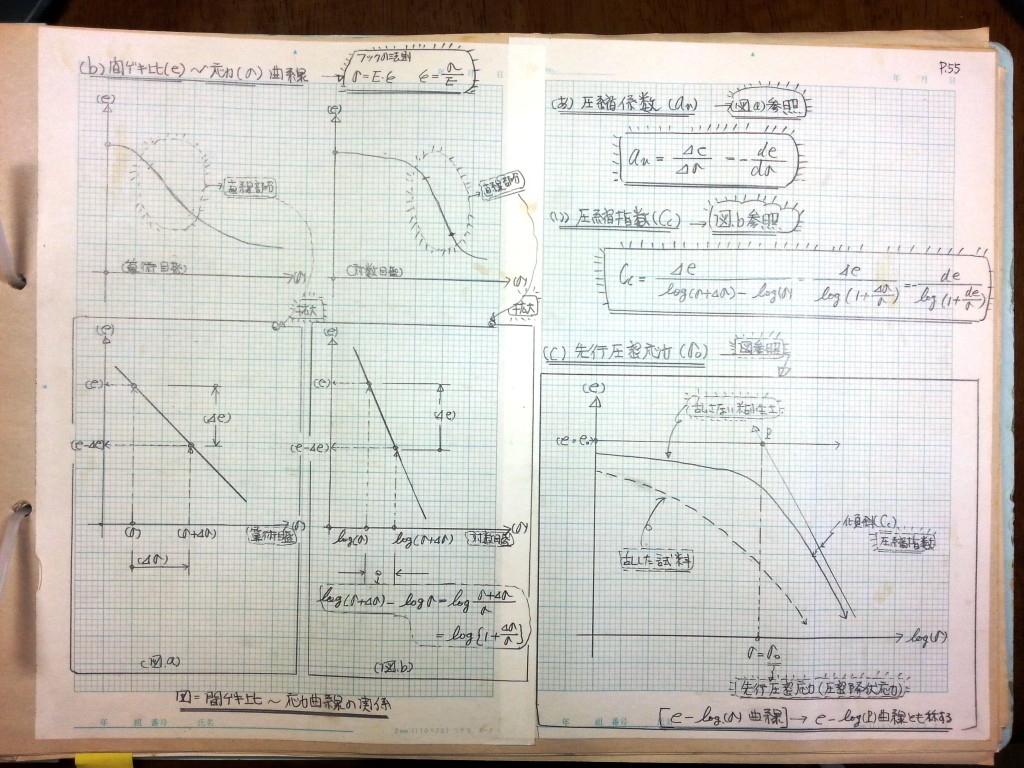 (b) 間ゲキ比(e) ～ 応力(σ) 曲線
フックの法則
σ=E・ε ε=σ/E
(e)
直線部分
(算術目盛)
(σ)
(e)
直線部分
(対数目盛)
(σ)
拡大
拡大
(e)
(e)
(Δe)
(e-Δe)
(σ)
(σ+Δσ)
(算術目盛)
(σ)
(Δσ)
(図.a)
(e)
(e)
(Δe)
(e-Δe)
log(σ)
log(σ+Δσ)
対数目盛
(σ)
log(σ+Δσ) - logσ = log (σ+Δσ)/σ
= log{1+Δσ/σ}
(図.b)
図=間ゲキ比 ～ 応力曲線の関係
年 組 番号 氏名
年 月 日
P.55
(あ) 圧縮係数 (an) → 図(a)参照
an = Δe/Δσ = -de/dσ
(い) 圧縮指数(Cc) → 図.b参照
Cc = Δe/(log(σ+Δσ) - log(σ)) = Δe/log(1+Δσ/σ) = -de/log(1+de/σ)
(C) 先行圧密応力(σo) → 図参照
(e)
乱さない粘性土
(e=eo)
P
勾配(Cc)
圧縮指数
乱した試料
log(σ)
σ=σo
先行圧密応力(圧密降伏応力)
[e-log(σ)曲線] → e-log(P)曲線とも称する
年 組 番号